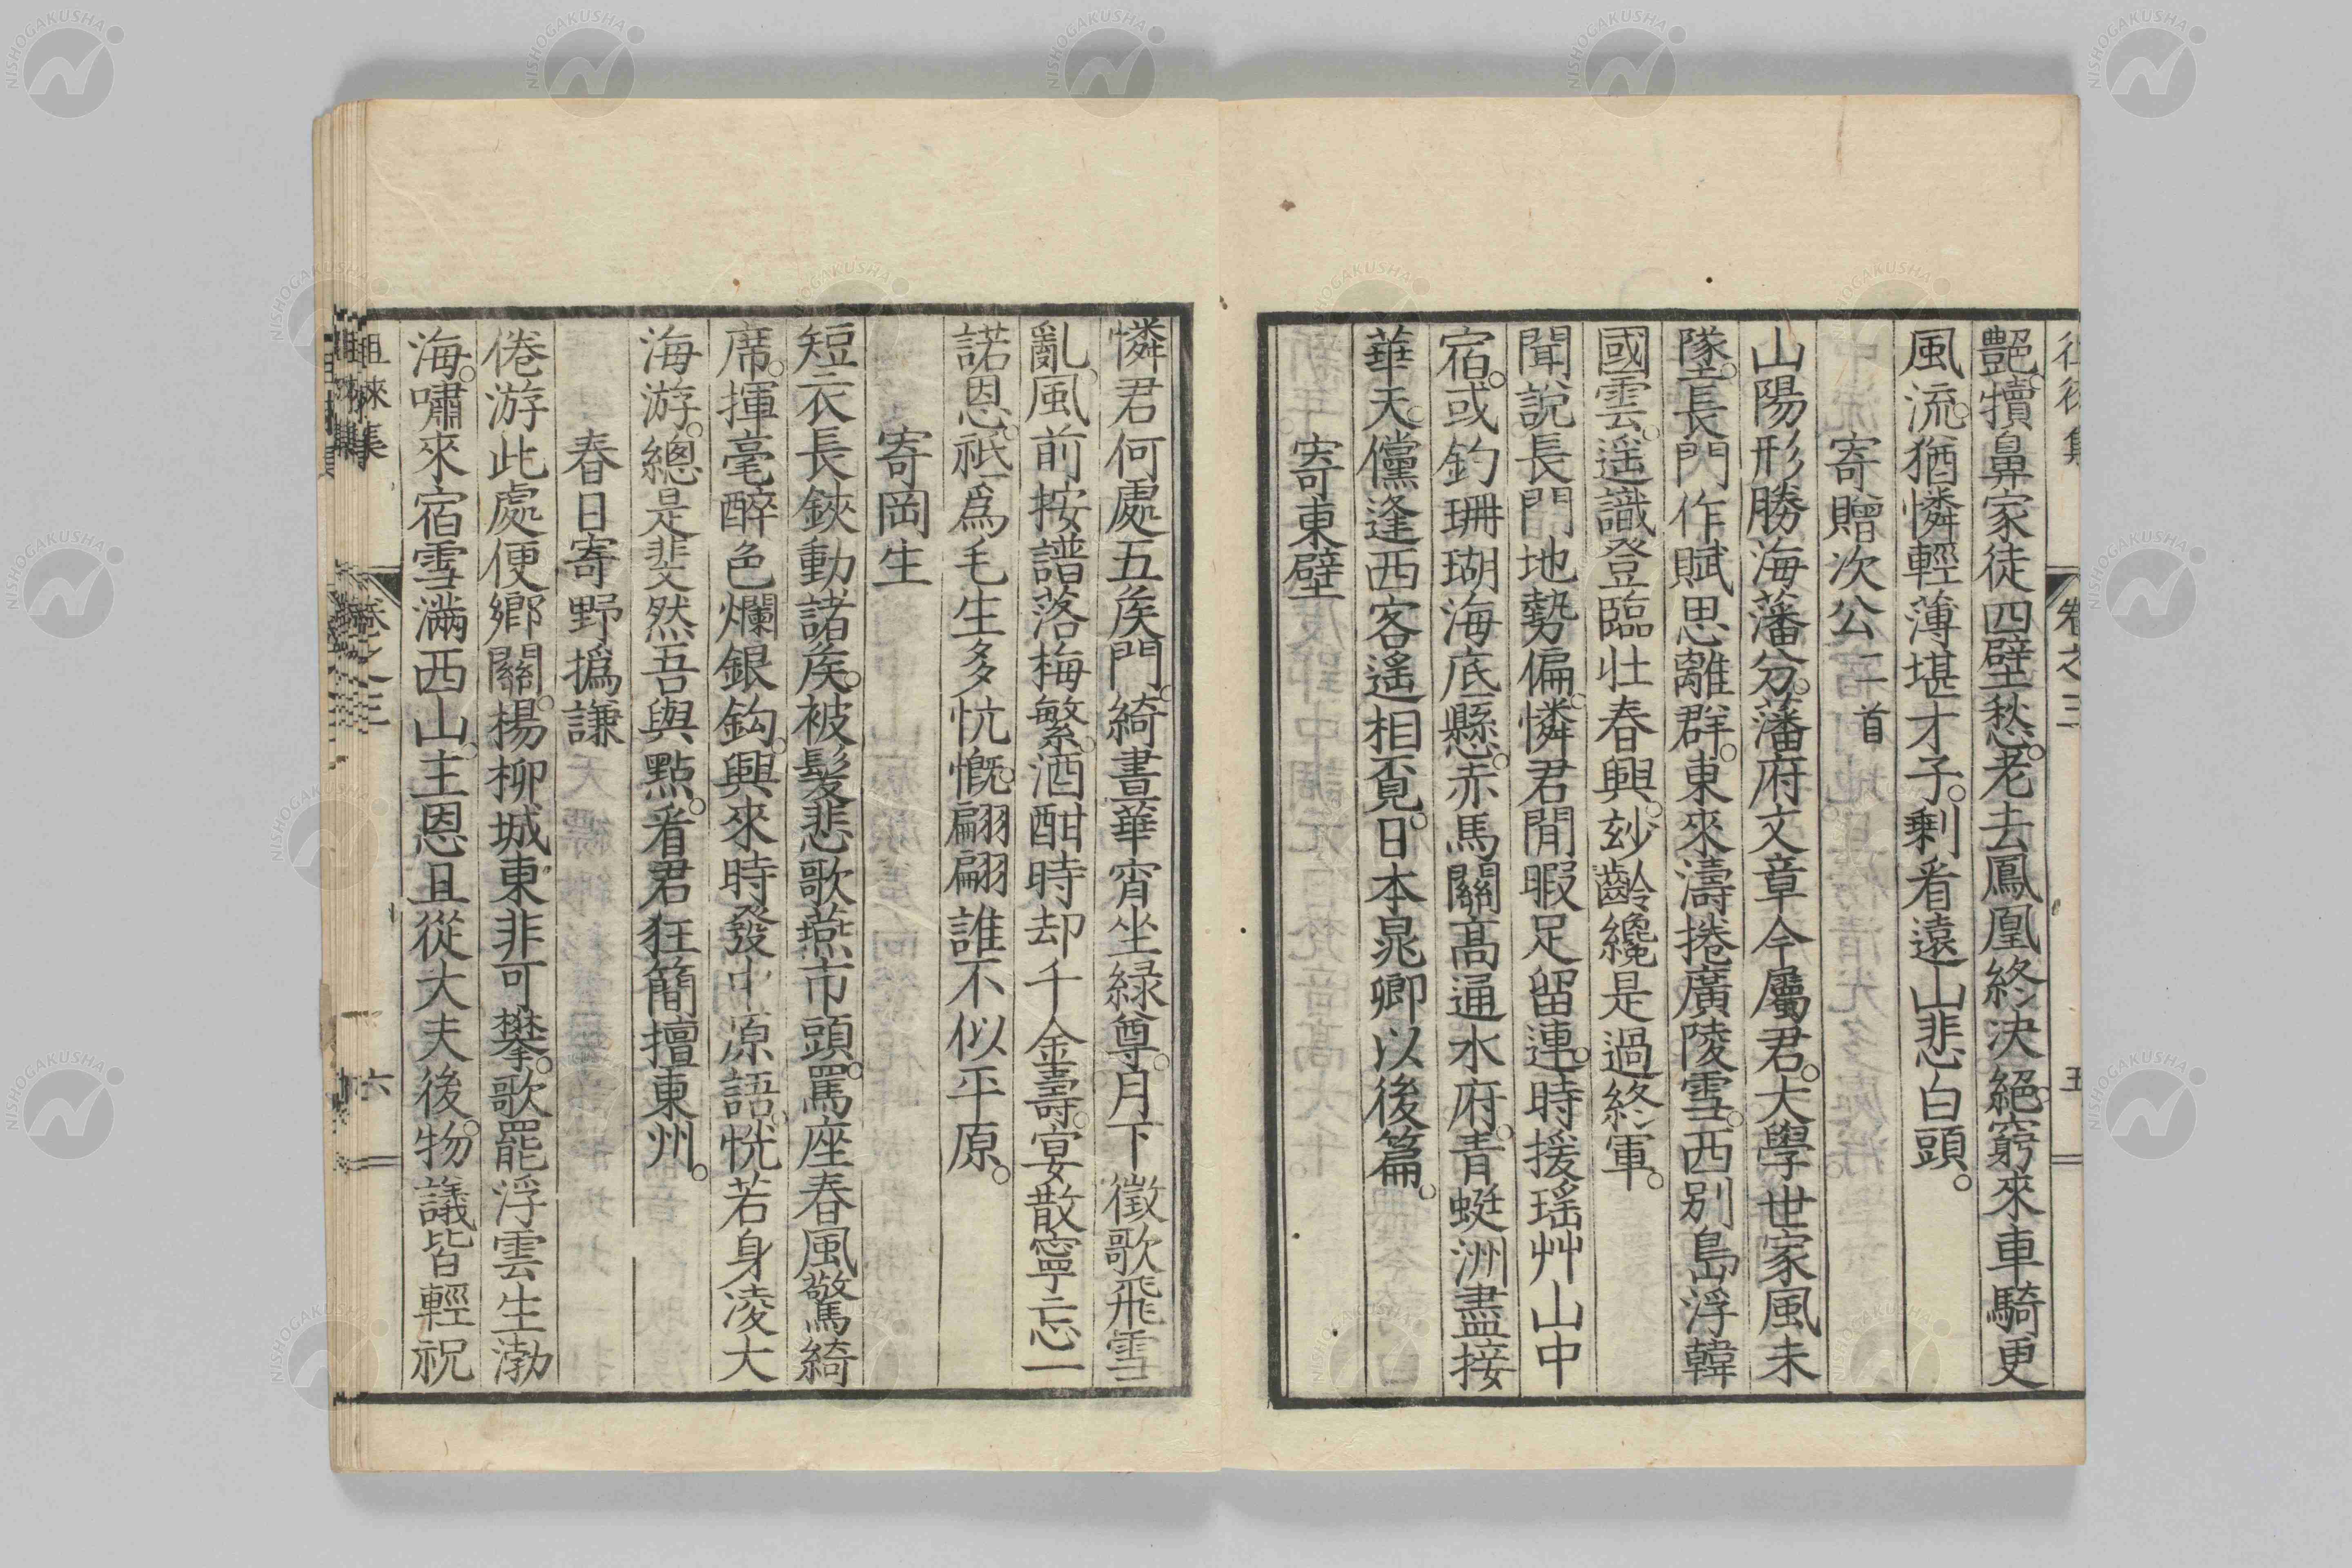 艶。犢鼻家徒四壁愁。老去鳳凰終決絕。窮來車騎更
風流。猶憐輕薄堪才子。剩看遠山悲白頭。
寄贈次公二首
山陽形勝海藩分。藩府文章今屬君。大學世家風未
墜。長門作賦思離群。東來濤捲廣陵雪。西別島浮韓
國雲。遥識登臨壯春興。玅齡纔是過終軍。
聞說長門地勢偏。憐君閒暇足留連。時援瑶艸山中
宿。或釣珊瑚海底懸。赤馬關高通水府。青蜓洲盡接
華天。儻逢西客遥相覔。日本晁卿以後篇。
寄東壁
卷之三
五
憐君何處五矦門。綺晝華宵坐緑尊。月下徵歌飛雪
亂。風前按譜落梅繁。酒酣時却千金壽。宴散寧忘一
諾恩。祇爲毛生多忼慨。翩翩誰不似平原。
寄岡生
短衣長鋏動諸矦。被髮悲歌燕市頭。罵座春風驚綺
席。揮毫醉色爛銀鈎。興來時發中原語。恍若身凌大
海游。總是斐然吾與點。看君狂簡擅東州。
春日寄野撝謙
倦游此處便鄉關。楊柳城東非可攀。歌罷浮雲生渤
海。嘯來宿雪滿西山。主恩且從大夫後。物議皆輕祝
徂徠集
卷之三
六
NISHOGAKUSHA